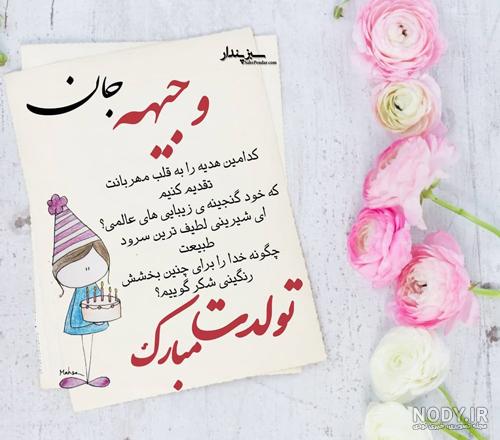 سبز پندار
SabzPendar.com
وجیهه جان
کدامین هدیه را به قلب مهربانت
تقدیم کنیم
که خود گنجینه ی زیبایی های عالمی؟
ای شیرینی لطیف ترین سرود
طبیعت
چگونه خدا را برای چنین بخشش
رنگینی شکر گوییم؟
تولدت مبارک
Mahsa
NODY.IR
مجله تصویری، خبری نودی